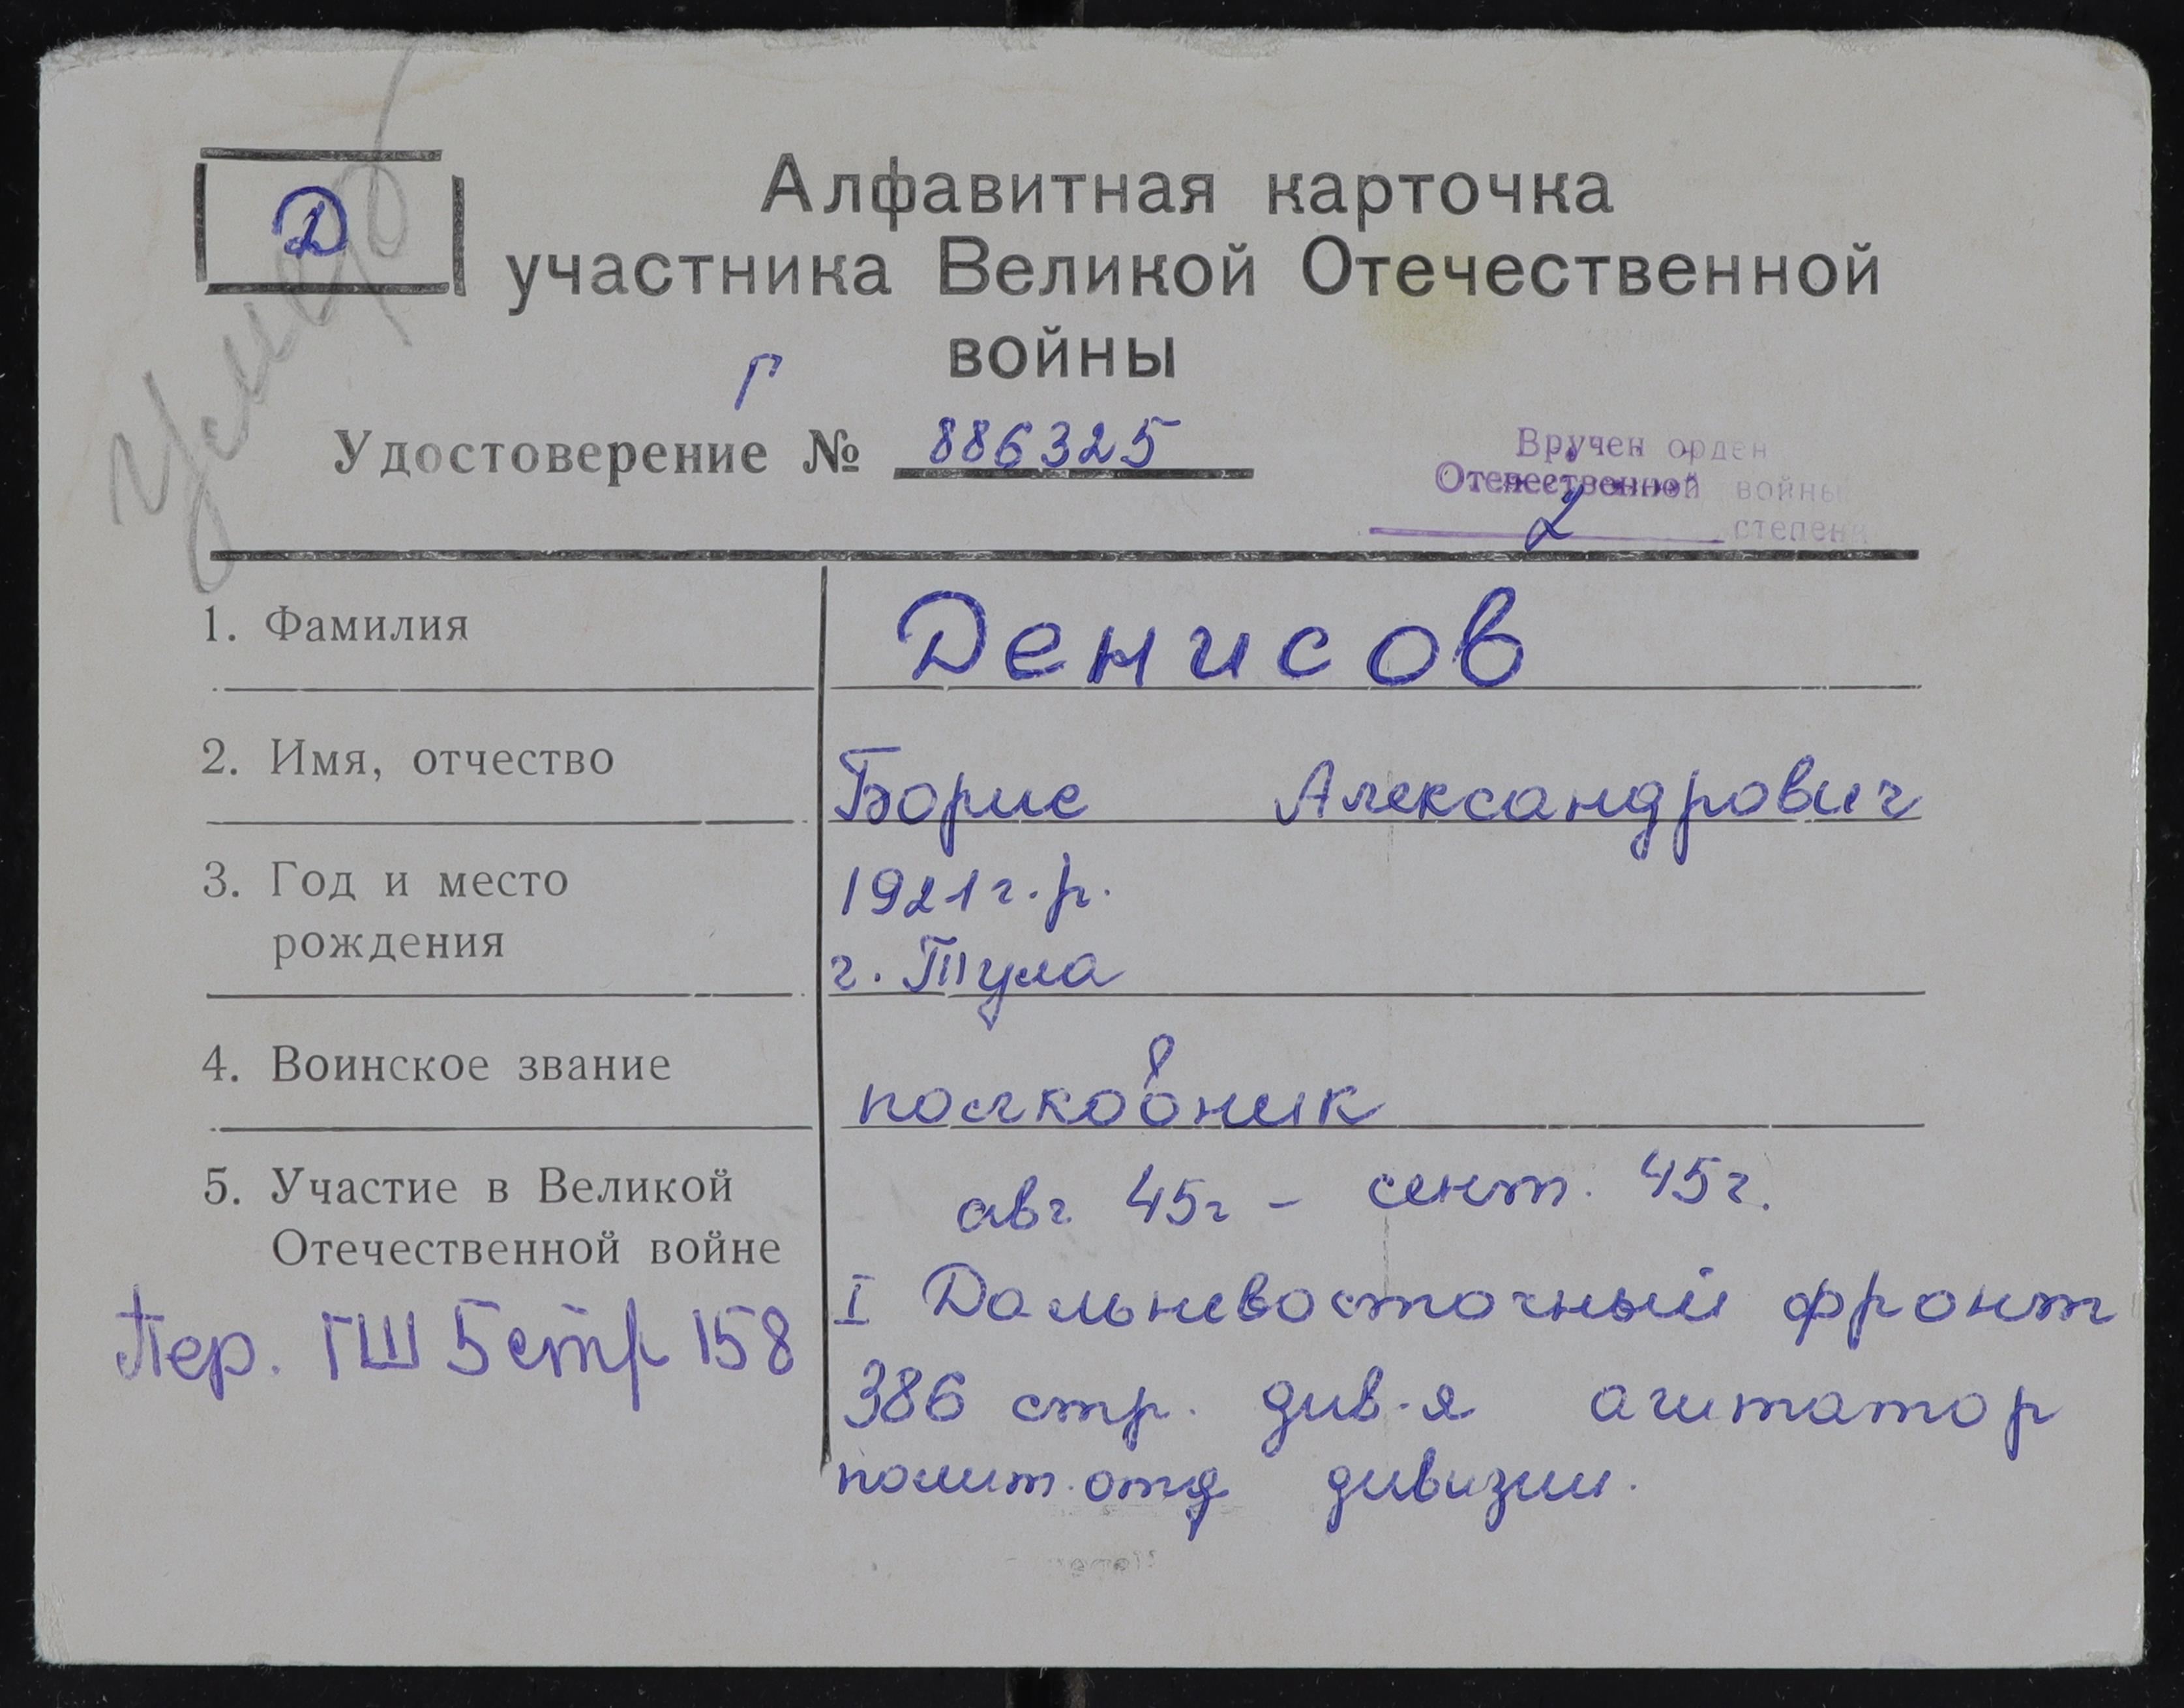 Умер
Д
Алфавитная карточка
участника Великой Отечественной
войны
Г
Удостоверение № 886325
Вручен орден
Отечественной войны
2 степени
1. Фамилия Денисов
2. Имя, отчество Борис Александрович
3. Год и место 1921 г.р.
рождения г. Тула
4. Воинское звание полковник
5. Участие в Великой авг 45г - сент. 45г.
Отечественной войне
I Дальневосточный фронт
Пер. ГШ 5 стр 158
386 стр. див-я агитатор
полит.отд дивизии.